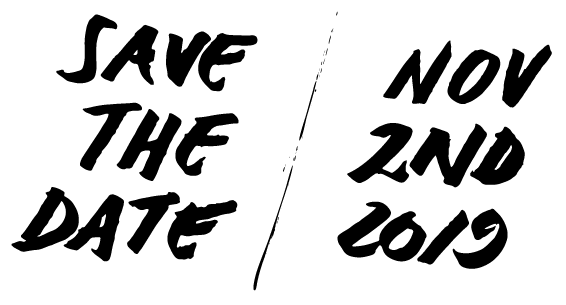 SAVE
THE
DATE
NOV
2ND
2019